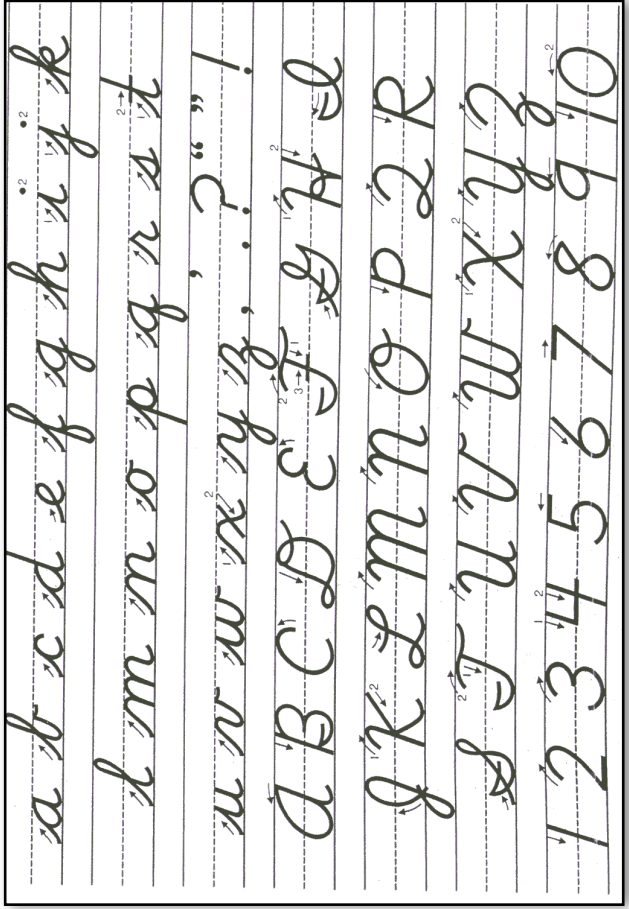 a b c d e f g h i j k
l m n o p q r s t
u v w x y z , . . ? ’ “ ” !
A B C D E F G H I
J K L M N O P Q R
S T U V W X Y Z
1 2 3 4 5 6 7 8 9 10